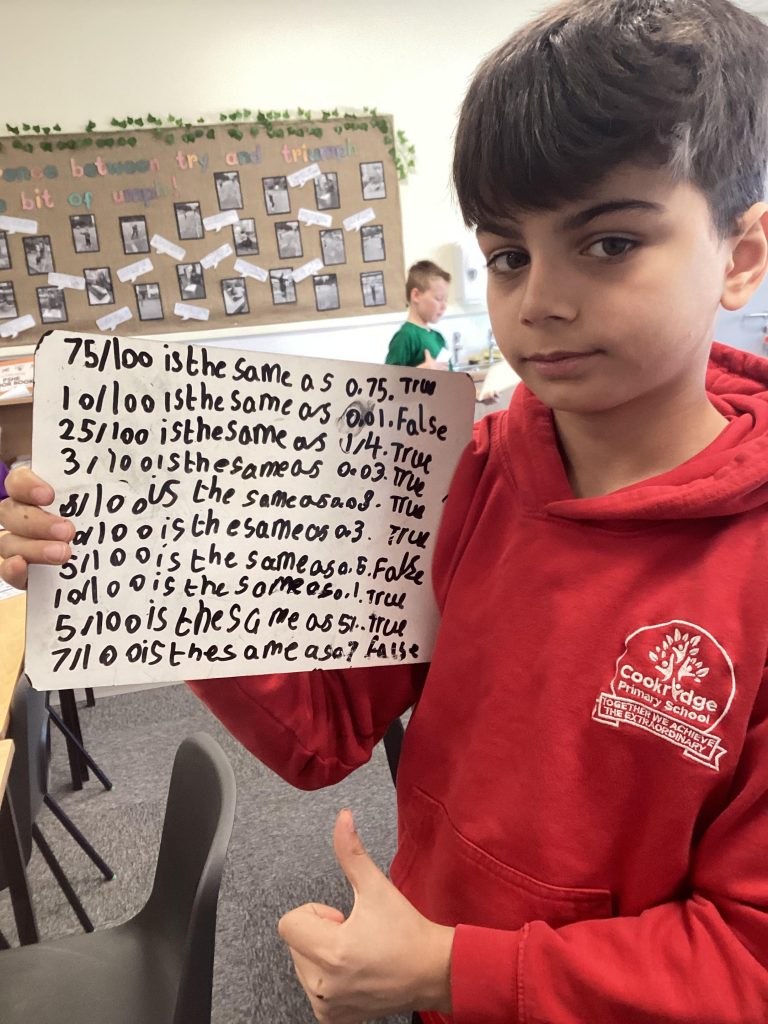 ence between try and triumph
bit of umph!
75/100 is the same as 0.75. True
10/100 is the same as 0.01. False
25/100 is the same as 1/4. True
3/100 is the same as 0.03. True
/100 is the same as 0.0 . True
/100 is the same as 0.3. True
5/100 is the same as 0.5. False
10/100 is the same as 0.1. True
5/100 is the same as 5%. True
7/100 is the same as 0.7 False
Cookridge
Primary School
TOGETHER WE ACHIEVE
THE EXTRAORDINARY